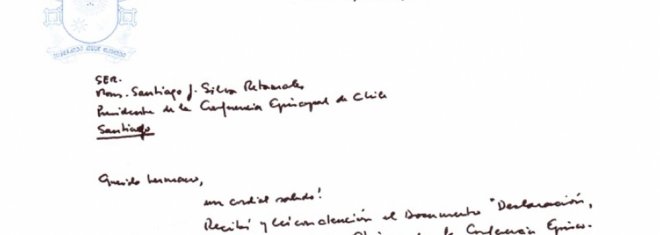 MISERANDO ATQUE ELIGENDO
SER.
Mons. Santiago J. Silva Retamales
Presidente de la Conferencia Episcopal de Chile
Santiago
Querido hermano,
un cordial saludo!
Recibí y leí con atención el Documento "Declaración,
de la Conferencia Episco-